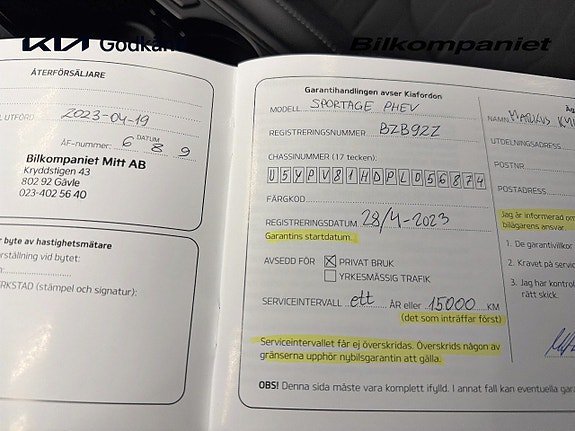 KIA Godkän
Bilkompaniet
ÅTERFÖRSÄLJARE
UTFÖRD 2023-04-19
DATUM
ÅF-nummer: 6 8 9
Bilkompaniet Mitt AB
Kryddstigen 43
802 92 Gävle
023-402 56 40
r byte av hastighetsmätare
orställning vid bytet:
n:
ERKSTAD (stämpel och signatur):
Garantihandlingen avser Kiafordon
MODELL SPORTAGE PHEV
REGISTRERINGSNUMMER BZB92Z
CHASSINUMMER (17 tecken):
U5YPV81HDPL056874
FÄRGKOD
REGISTRERINGSDATUM 28/4-2023
Garantins startdatum.
AVSEDD FÖR PRIVAT BRUK
YRKESMÄSSIG TRAFIK
SERVICEINTERVALL ett ÅR eller 15000 KM
(det som inträffar först)
Serviceintervallet får ej överskridas. Överskrids någon av
gränserna upphör nybilsgarantin att gälla.
OBS! Denna sida måste vara komplett ifylld. I annat fall kan eventuella garan
NAMN
UTDELNINGSADRESS
POSTNR
POSTADRESS
Jag är informerad om
bilägarens ansvar
1. De garantivillkor
2. Kravet på service
3. Jag har kontrol
rätt skick.